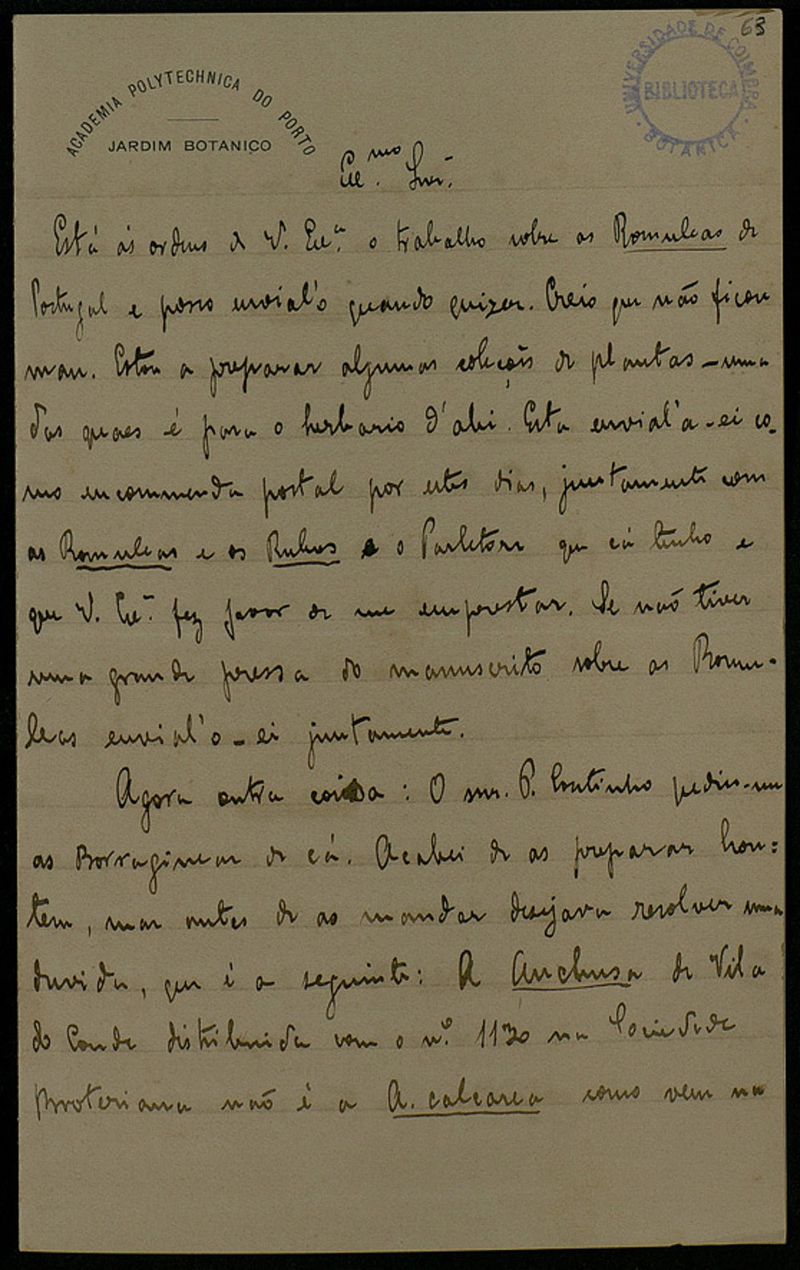 63
UNIVERSIDADE DE COIMBRA
BIBLIOTECA
BOTANICA
ACADEMIA POLYTECHNICA DO PORTO
JARDIM BOTANICO
Exmo. Snr.
Está ás ordens de V. Exa. o trabalho sobre as Romuleas de
Portugal e posso envial'o quando quizer. Creio que não ficou
mau. Estou a preparar algumas coleçõis de plantas - uma
das quaes é para o herbario d'ahi. Esta envial'a-ei co-
mo encommenda postal por estes dias, juntamente com
as Romuleas e os Rubus e o Parlatore que cá tenho e
que V. Exa. fez favor de me emprestar. Se não tiver
uma grande pressa do manuscrito sobre as Romu-
leas envial'o-ei juntamente.
Agora outra coisa: O snr. P. Coutinho pediu-me
as Borragineas de cá. Acabei de as preparar hon=
tem, mas antes de as mandar desejava resolver uma
duvida, que é a seguinte: A Anchusa de Vila
do Conde distribuida com o nº. 1130 na Sociedade
Broteriana não é a A. calcarea como vem na